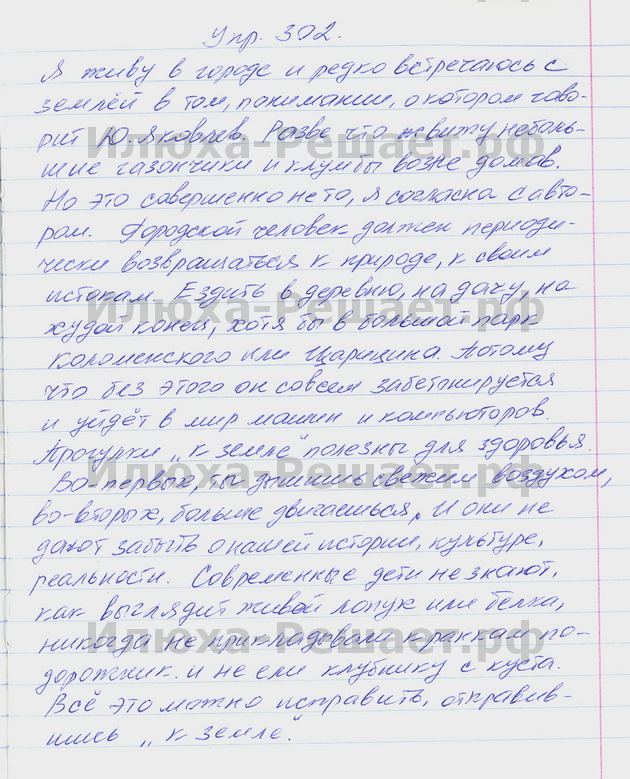 Упр. 302.
Я живу в городе и редко встречаюсь с
землёй в том, понимании, о котором гово-
рит Ю. Яковлев. Разве что я вижу неболь-
шие газончики и клумбы возле домов.
Но это совершенно не то, я согласна с авто-
ром. Городской человек должен периоди-
чески возвращаться к природе, к своим
истокам. Ездить в деревню, на дачу, на
худой конец, хотя бы в большой парк
Коломенского или Царицина. Потому
что без этого он совсем забетонируется
и уйдёт в мир машин и компьюторов.
Прогулки „к земле" полезны для здоровья.
Во-первых, ты дышишь свежим воздухом,
во-вторых, больше двигаешься. И они не
дают забыть о нашей истории, культуре,
реальности. Современные дети не знают,
как выглядит живой лопух или белка,
никогда не прикладовали к ранкам по-
дорожник и не ели клубнику с куста.
Всё это можно исправить, отправив-
шись „к земле".
Илюха-Решает.рф
Илюха-Решает.рф
Илюха-Решает.рф
Илюха-Решает.рф
Илюха-Решает.рф